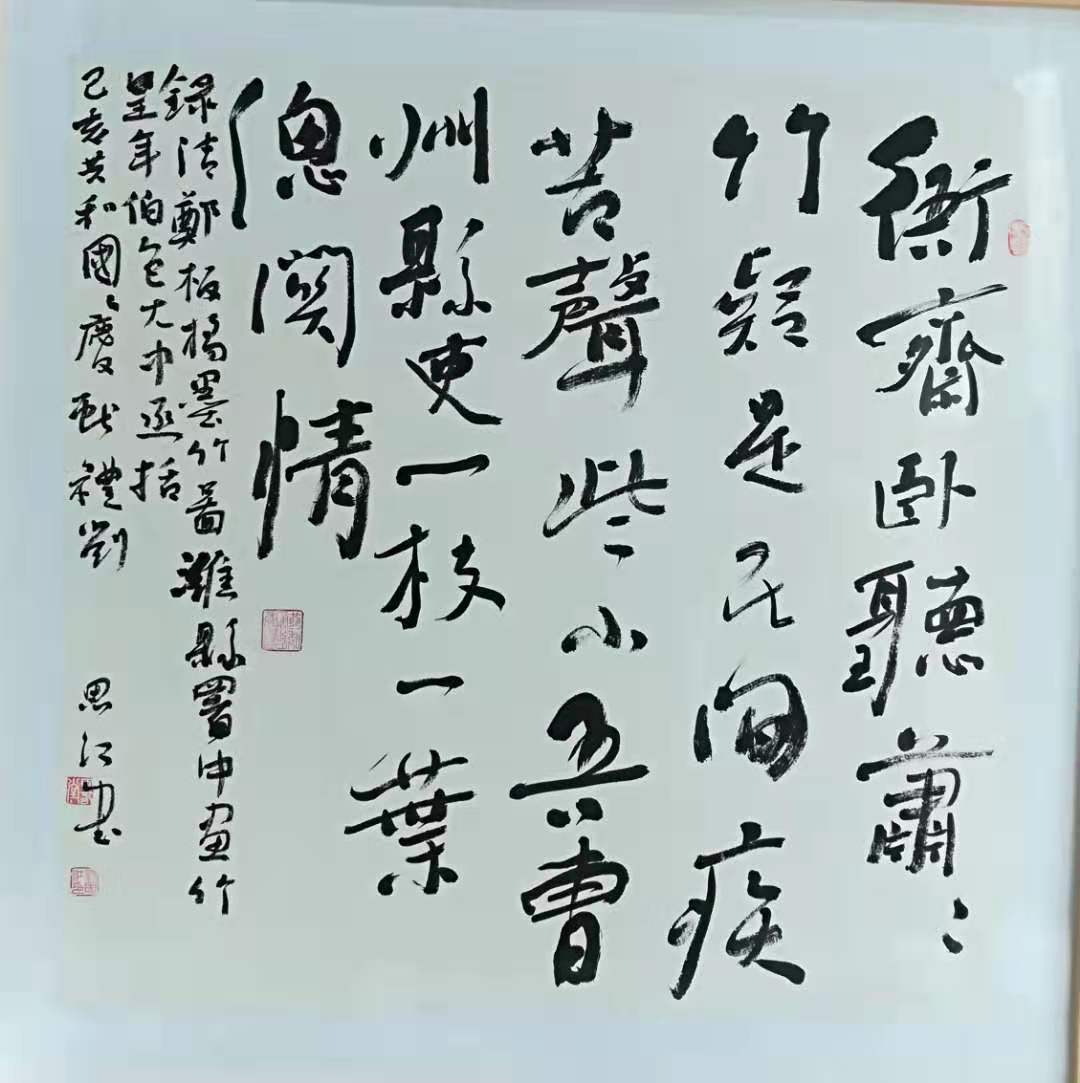 衙齋卧聽蕭〻
竹疑是民间疾
苦聲些小吾曹
州縣吏一枝一葉
總関情
録清鄭板橋墨竹畵濰縣署中画竹
呈年伯包大中丞括
己亥共和國〻慶献禮劉思江书